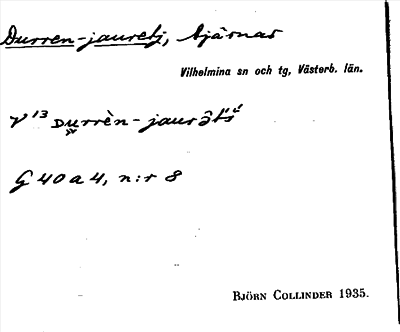 Durren-jauretj, tjärnar
Vilhelmina sn och tg, Västerb. län.
V¹³ Durrèn-jaurɔ̂t́ś
G 40 a 4, n:r 8
BJÖRN COLLINDER 1935.